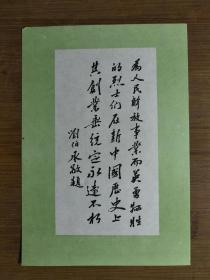 為人民解放事業而英勇牺牲
的烈士們在新中國歷史上
其創業垂統定永遠不朽
劉伯承敬題